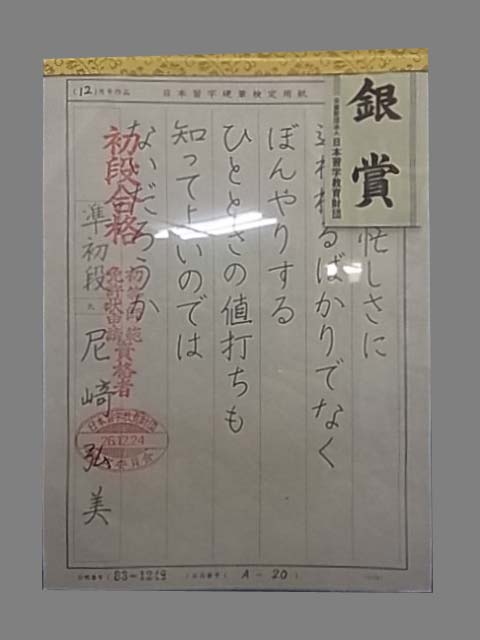 (12)月号作品
日本習字硬筆検定用紙
銀賞
公益財団法人 日本習字教育財団
忙しさに
追われるばかりでなく
ぼんやりする
ひとときの値打ちも
知ってよいのでは
ないだろうか
準初段 尼崎弘美
初段合格
資格者
日本習字教育財団
26.12.24
A-20